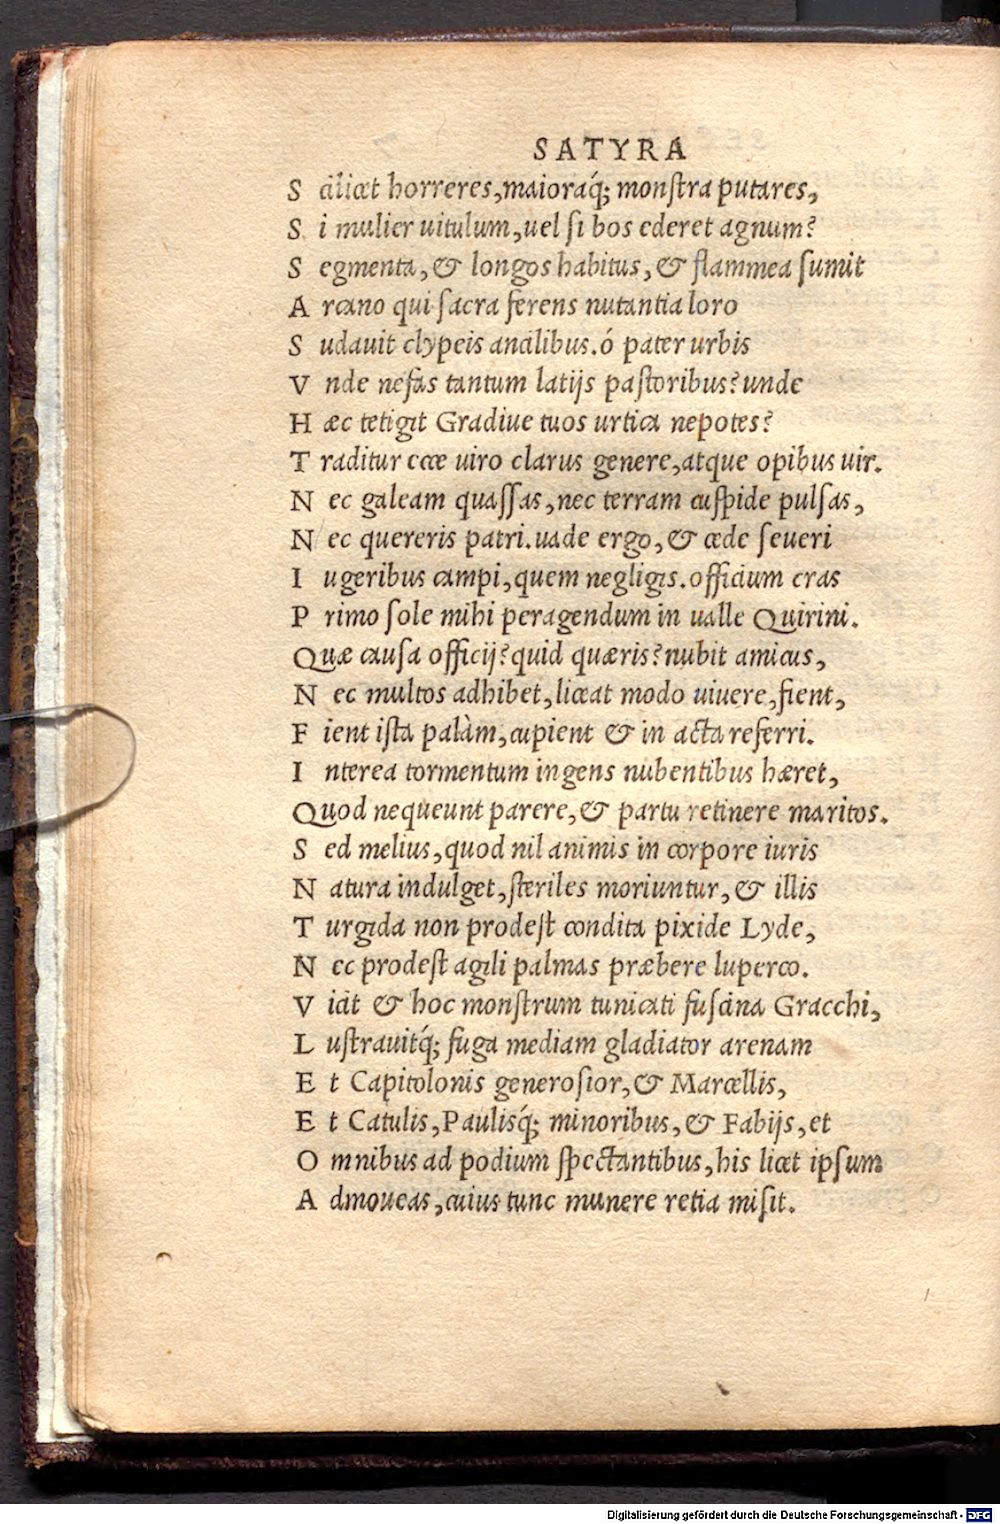 SATYRA
S cilicet horreres, maioraq́; monſtra putares,
S i mulier uitulum, uel ſi bos ederet agnum?
S egmenta, & longos habitus, & flammea ſumit
A rcano qui ſacra ferens nutantia loro
S udauit clypeis ancilibus. ó pater urbis
V nde nefas tantum latijs paſtoribus? unde
H æc tetigit Gradiue tuos urtica nepotes?
T raditur ecce uiro clarus genere, atque opibus uir.
N ec galeam quaſſas, nec terram cuſpide pulſas,
N ec quereris patri. uade ergo, & cede ſeueri
I ugeribus campi, quem negligis. officium cras
P rimo ſole mihi peragendum in ualle Quirini.
Quæ cauſa officij? quid quæris? nubit amicus,
N ec multos adhibet, liceat modo uiuere, fient,
F ient iſta palàm, cupient & in acta referri.
I nterea tormentum ingens nubentibus hæret,
Quod nequeunt parere, & partu retinere maritos.
S ed melius, quod nil animis in corpore iuris
N atura indulget, ſteriles moriuntur, & illis
T urgida non prodeſt condita pixide Lyde,
N ec prodeſt agili palmas præbere luperco.
V icit & hoc monſtrum tunicati fuſcina Gracchi,
L uſtrauitq́; fuga mediam gladiator arenam
E t Capitolonis generoſior, & Marcellis,
E t Catulis, Paulisq́; minoribus, & Fabijs, et
O mnibus ad podium ſpectantibus, his licet ipſum
A dmoueas, cuius tunc munere retia miſit.
Digitalisierung gefördert durch die Deutsche Forschungsgemeinschaft - DFG